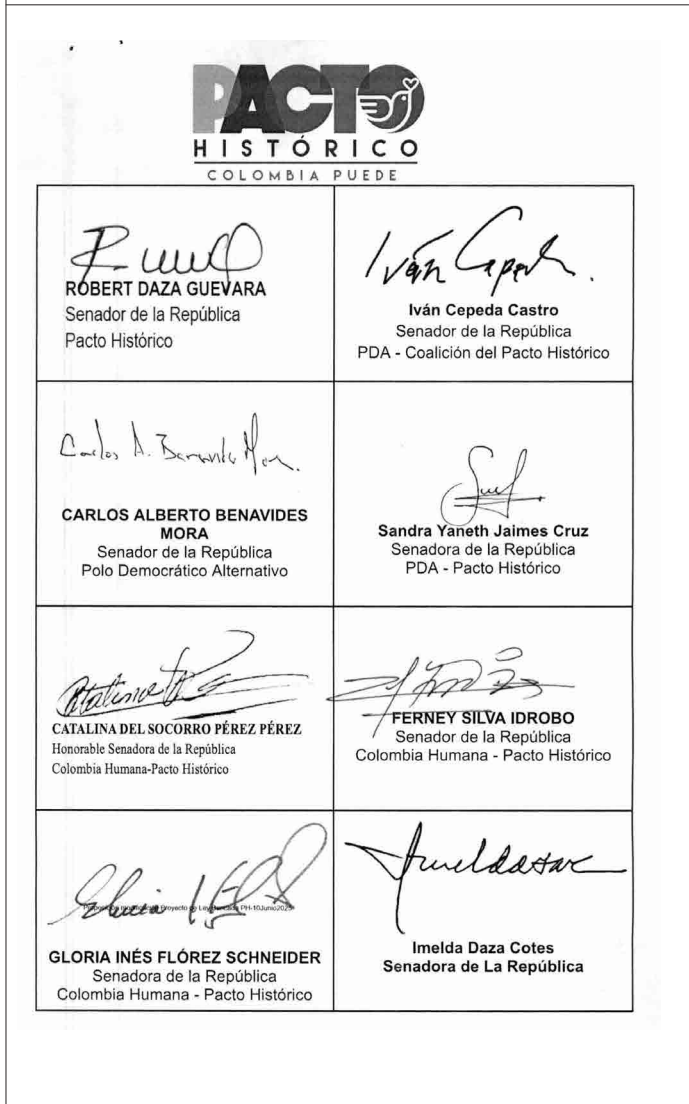 PACTO
HISTÓRICO
COLOMBIA PUEDE
ROBERT DAZA GUEVARA
Senador de la República
Pacto Histórico
Iván Cepeda.
Iván Cepeda Castro
Senador de la República
PDA - Coalición del Pacto Histórico
Carlos A. Benavides Mora.
CARLOS ALBERTO BENAVIDES
MORA
Senador de la República
Polo Democrático Alternativo
Sandra Yaneth Jaimes Cruz
Senadora de la República
PDA - Pacto Histórico
CATALINA DEL SOCORRO PÉREZ PÉREZ
Honorable Senadora de la República
Colombia Humana-Pacto Histórico
FERNEY SILVA IDROBO
Senador de la República
Colombia Humana - Pacto Histórico
Proyecto de Ley PH-10Junio2025
GLORIA INÉS FLÓREZ SCHNEIDER
Senadora de la República
Colombia Humana - Pacto Histórico
Imelda Daza Cotes
Senadora de La República